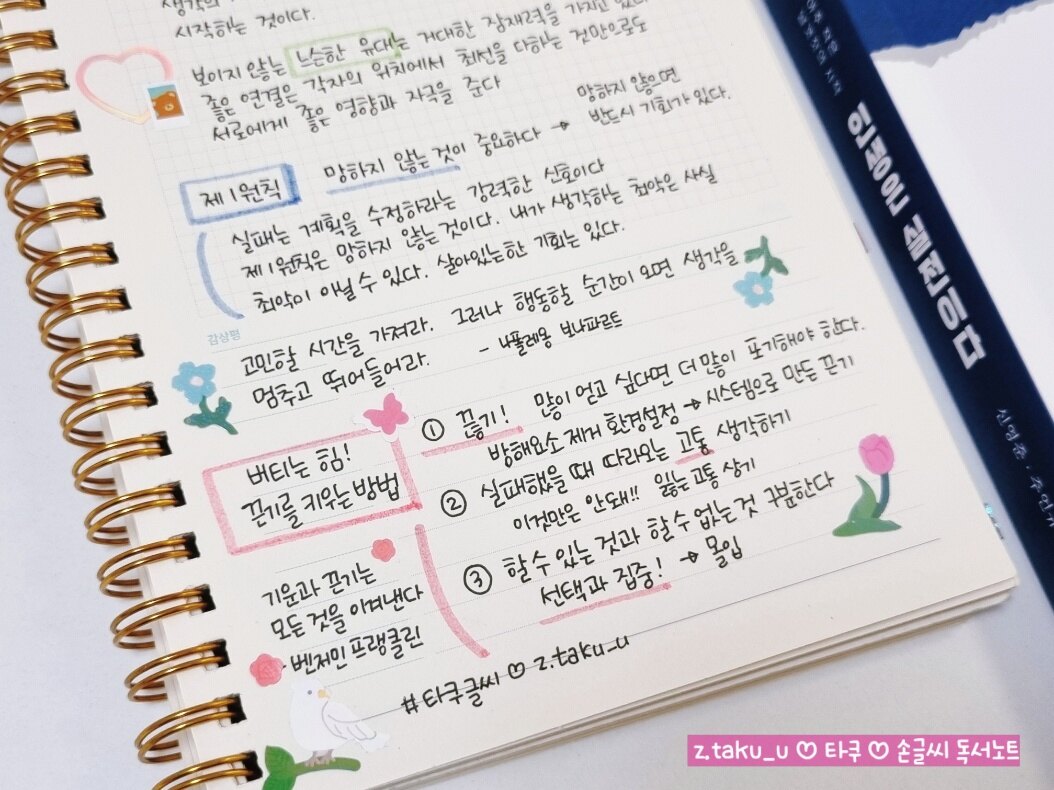 생각의
시작하는 것이다.
보이지 않는 느슨한 유대는 거대한 잠재력을 가지고 있다
좋은 연결은 각자의 위치에서 최선을 다하는 것만으로도
서로에게 좋은 영향과 자극을 준다
제1원칙
망하지 않는 것이 중요하다 → 망하지 않으면
반드시 기회가 있다.
실패는 계획을 수정하라는 강력한 신호이다
제1원칙은 망하지 않는 것이다. 내가 생각하는 최악은 사실
최악이 아닐 수 있다. 살아있는한 기회는 있다.
감상평
고민할 시간을 가져라. 그러나 행동할 순간이 오면 생각을
멈추고 뛰어들어라.
- 나폴레옹 보나파르트
버티는 힘!
끈기를 키우는 방법
① 끊기! 많이 얻고 싶다면 더 많이 포기해야 한다.
방해요소 제거 환경설정 → 시스템으로 만든 끈기
② 실패했을 때 따라오는 고통 생각하기
이것만은 안돼!! 잃는 고통 상기
③ 할 수 있는 것과 할 수 없는 것 구분한다
선택과 집중! → 몰입
기운과 끈기는
모든 것을 이겨낸다
- 벤저민 프랭클린
#타쿠글씨 ♡ z.taku_u
인생은 실전이다
신영준 · 주언규
z.taku_u ♡ 타쿠 ♡ 손글씨 독서노트